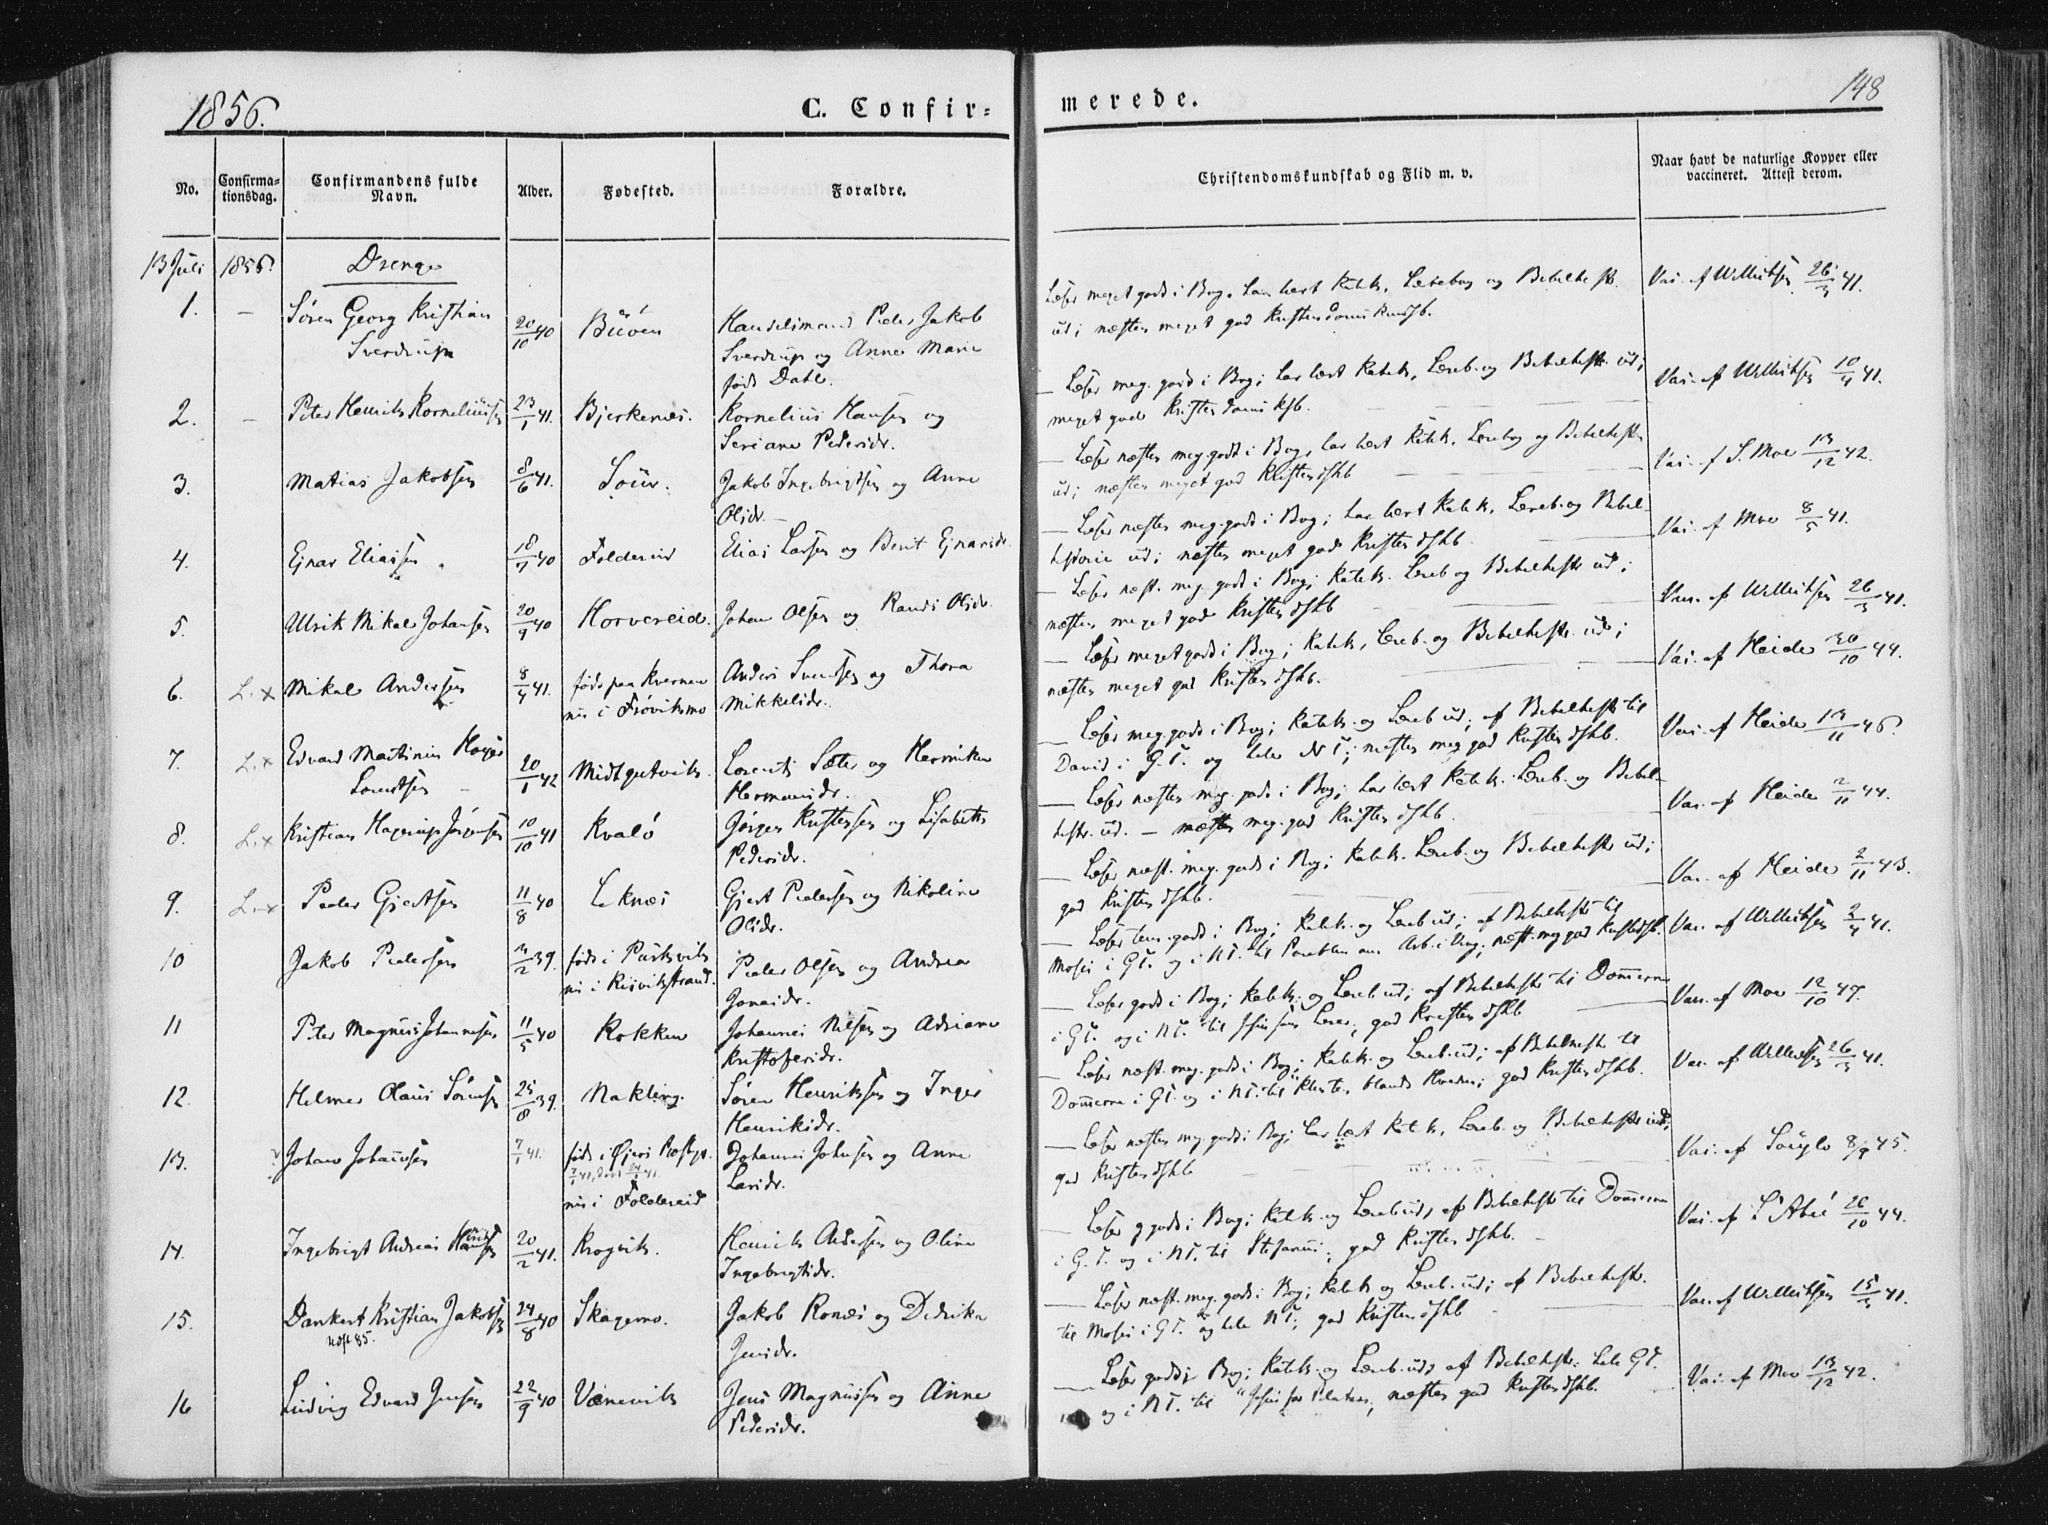 1856.
C. Confir=
merede.
148
No.
Confirma=
tionsdag.
Confirmandens fulde
Navn.
Alder.
Fødested.
Forældre.
Christendomskundskab og Flid m. v.
Naar havt de naturlige Kopper eller
vaccineret. Attest derom.
13 Juli 1856.
Drenge
1. – Søren Georg Kristian
Sverdrup
20/10 40
Büöen
Handelsmand Peder Jakob
Sverdrup og Anne Marie
født Dahl.
Læser meget godt i Bog. har lært Katek, Lærebog og Bibelhist.
ud; næsten meget god Kristendomskundsb.
Vac. af Willertsen 26/3 41.
2. – Peter Henrik Korneliüssen
23/1 41.
Bjerkenæs.
Kornelius Hansen og
Seriane Pedersdr.
– Læser meg. godt i Bog; har lært Katek, Læreb. og Bibelhistr. ud;
meget god Kristendomsksb.
Vac. af Willertsen 10/4 41.
3. Matias Jakobsen
8/6 41.
Jakob Ingebrigtsen og Anne
Olsdr.
– Læser næsten meg. godt i Bog, har lært Katek, Lærebog og Bibelhistr
ud; næsten meget god Kristendskb
Vac. af S. Moe 13/12 42.
4. Ejnar Eliassen
18/7 40
Foldereid
Elias Larsen og Berit Ejnarsdr.
– Læser næsten meg. godt i Bog; har lært Katek, Læreb. og Bibel-
historie ud; næsten meget god Kristendskb.
Vac. af Moe 8/5 41.
5. Ulrik Mikal Johansen
20/9 40
Horvereid.
Johan Olsen og Randi Olsdr.
– Læser næst. meg. godt i Bog; Katek. Læreb og Bibelhistr ud;
næsten meget god Kristendskb
Vac. af Willertsen 26/3 41.
6. L. x Mikal Andersen
8/4 41.
født paa Kvernæs
nu i Frøviksmo
Anders Svendsen og Thora
Mikkelsdr.
– Læser meget godt i Bog; Katek, Læreb. og Bibelhistr. ud;
næsten meget god Kristendskb.
Vac. af Heide 30/10 44.
7. L. x Edvard Martinus Høyer
Lorentsen
20/1 42
Midtgutvik.
Lorents Sæter og Henrikke
Hermansdr.
– Læser meg. godt i Bog; Katek. og Læreb ud; af Bibelhistr til
David i G.T. og hele N.T.; næsten meg god Kristendskb.
Vac. af Heide 13/11 46.
8. L. x Kristian Hagerup Jörgensen
10/10 41
Kvalö
Jörgen Kristensen og Lisabeth
Pedersdr.
– Læser næsten meg. godt i Bog; har lært Katek. Læreb. og Bibel-
histr. ud. – næsten meg. god Kristendskb.
Vac. af Heide 2/11 44.
9. L. x Peder Gjertsen
11/8 40
Leknæs
Gjert Pedersen og Nikoline
Olsdr.
– Læser næst. meg. godt i Bog; Katek. Læreb. og Bibelhistr ud;
god Kristendskb.
Vac. af Heide 2/11 43.
10 Jakob Pedersen
3/2 39.
født i
nu i
Peder Olsen og Andrea
Jonasdr.
– Læser tem. godt i Bog; Katek. og Læreb ud; af Bibelhistr til
Moses i G.T. og i N.T. til Parablen om Arb. i Ving. næst. meg god Kristdskb.
Vac. af Willertsen 2/4 41.
11 Peter Magnus Johannesen
11/5 40
Kokken
Johannes Nilsen og Adriane
Kristofersdr.
– Læser godt i Bog; Katek. og Læreb. ud; af Bibelhistr til Dommerne
i G.T. og i N.T. til god Kristendskb
Vac. af Moe 12/10 47.
12. Helmer Olaus Sörensen
25/8 39.
Nakling.
Sören Henriksen og Inger
Henriksdr.
– Læser næst. meg. godt i Bog; Katek. og Læreb. ud; af Bibelhistr. til
Dommerne i G.T. og i N.T. til blandt Hveden; god Kristendskb.
Vac. af Willertsen 26/3 41.
13. Johan Johansen
7/1 41.
født i Præstgj.
nu i Foldereid
Johannes Johnsen og Anne
Larsdr.
– Læser næsten meg. godt i Bog; har lært Katek, Læreb. og Bibelhistr ud;
god Kristendskb
Vac. af 8/9 45.
14. Ingebrigt Andreas Henriksen
20/2 41.
Krogvik.
Henrik Andersen og Oline
Ingebrigtsdr.
– Læser godt i Bog; Katek. og Læreb ud, af Bibelhistr til Dommerne
i G.T. og i N.T. til Stefanus; god Kristendskb.
Vac. af 26/10 44.
15. Dankert Kristian Jakobsen
24/8 40
Skagemo.
Jakob Ronæs og Dedrika
Jensdr.
– Læser næst. meg. godt i Bog; Katek og Læreb. ud; af Bibelhistr.
til Moses i G.T. og hele N.T; god Kristendskb
Vac. af Willertsen 15/3 41.
16 Ludvig Edvard Jensen
22/9 40
Værevik
Jens Magnüssen og Anne
Pedersdr.
– Læser godt i Bog; Katek. og Læreb. ud; af Bibelhistr. hele G.T.
og i N.T. til "Jesus for Pilatus; næsten god Kristendskb.
Vac. af Moe 13/12 42.